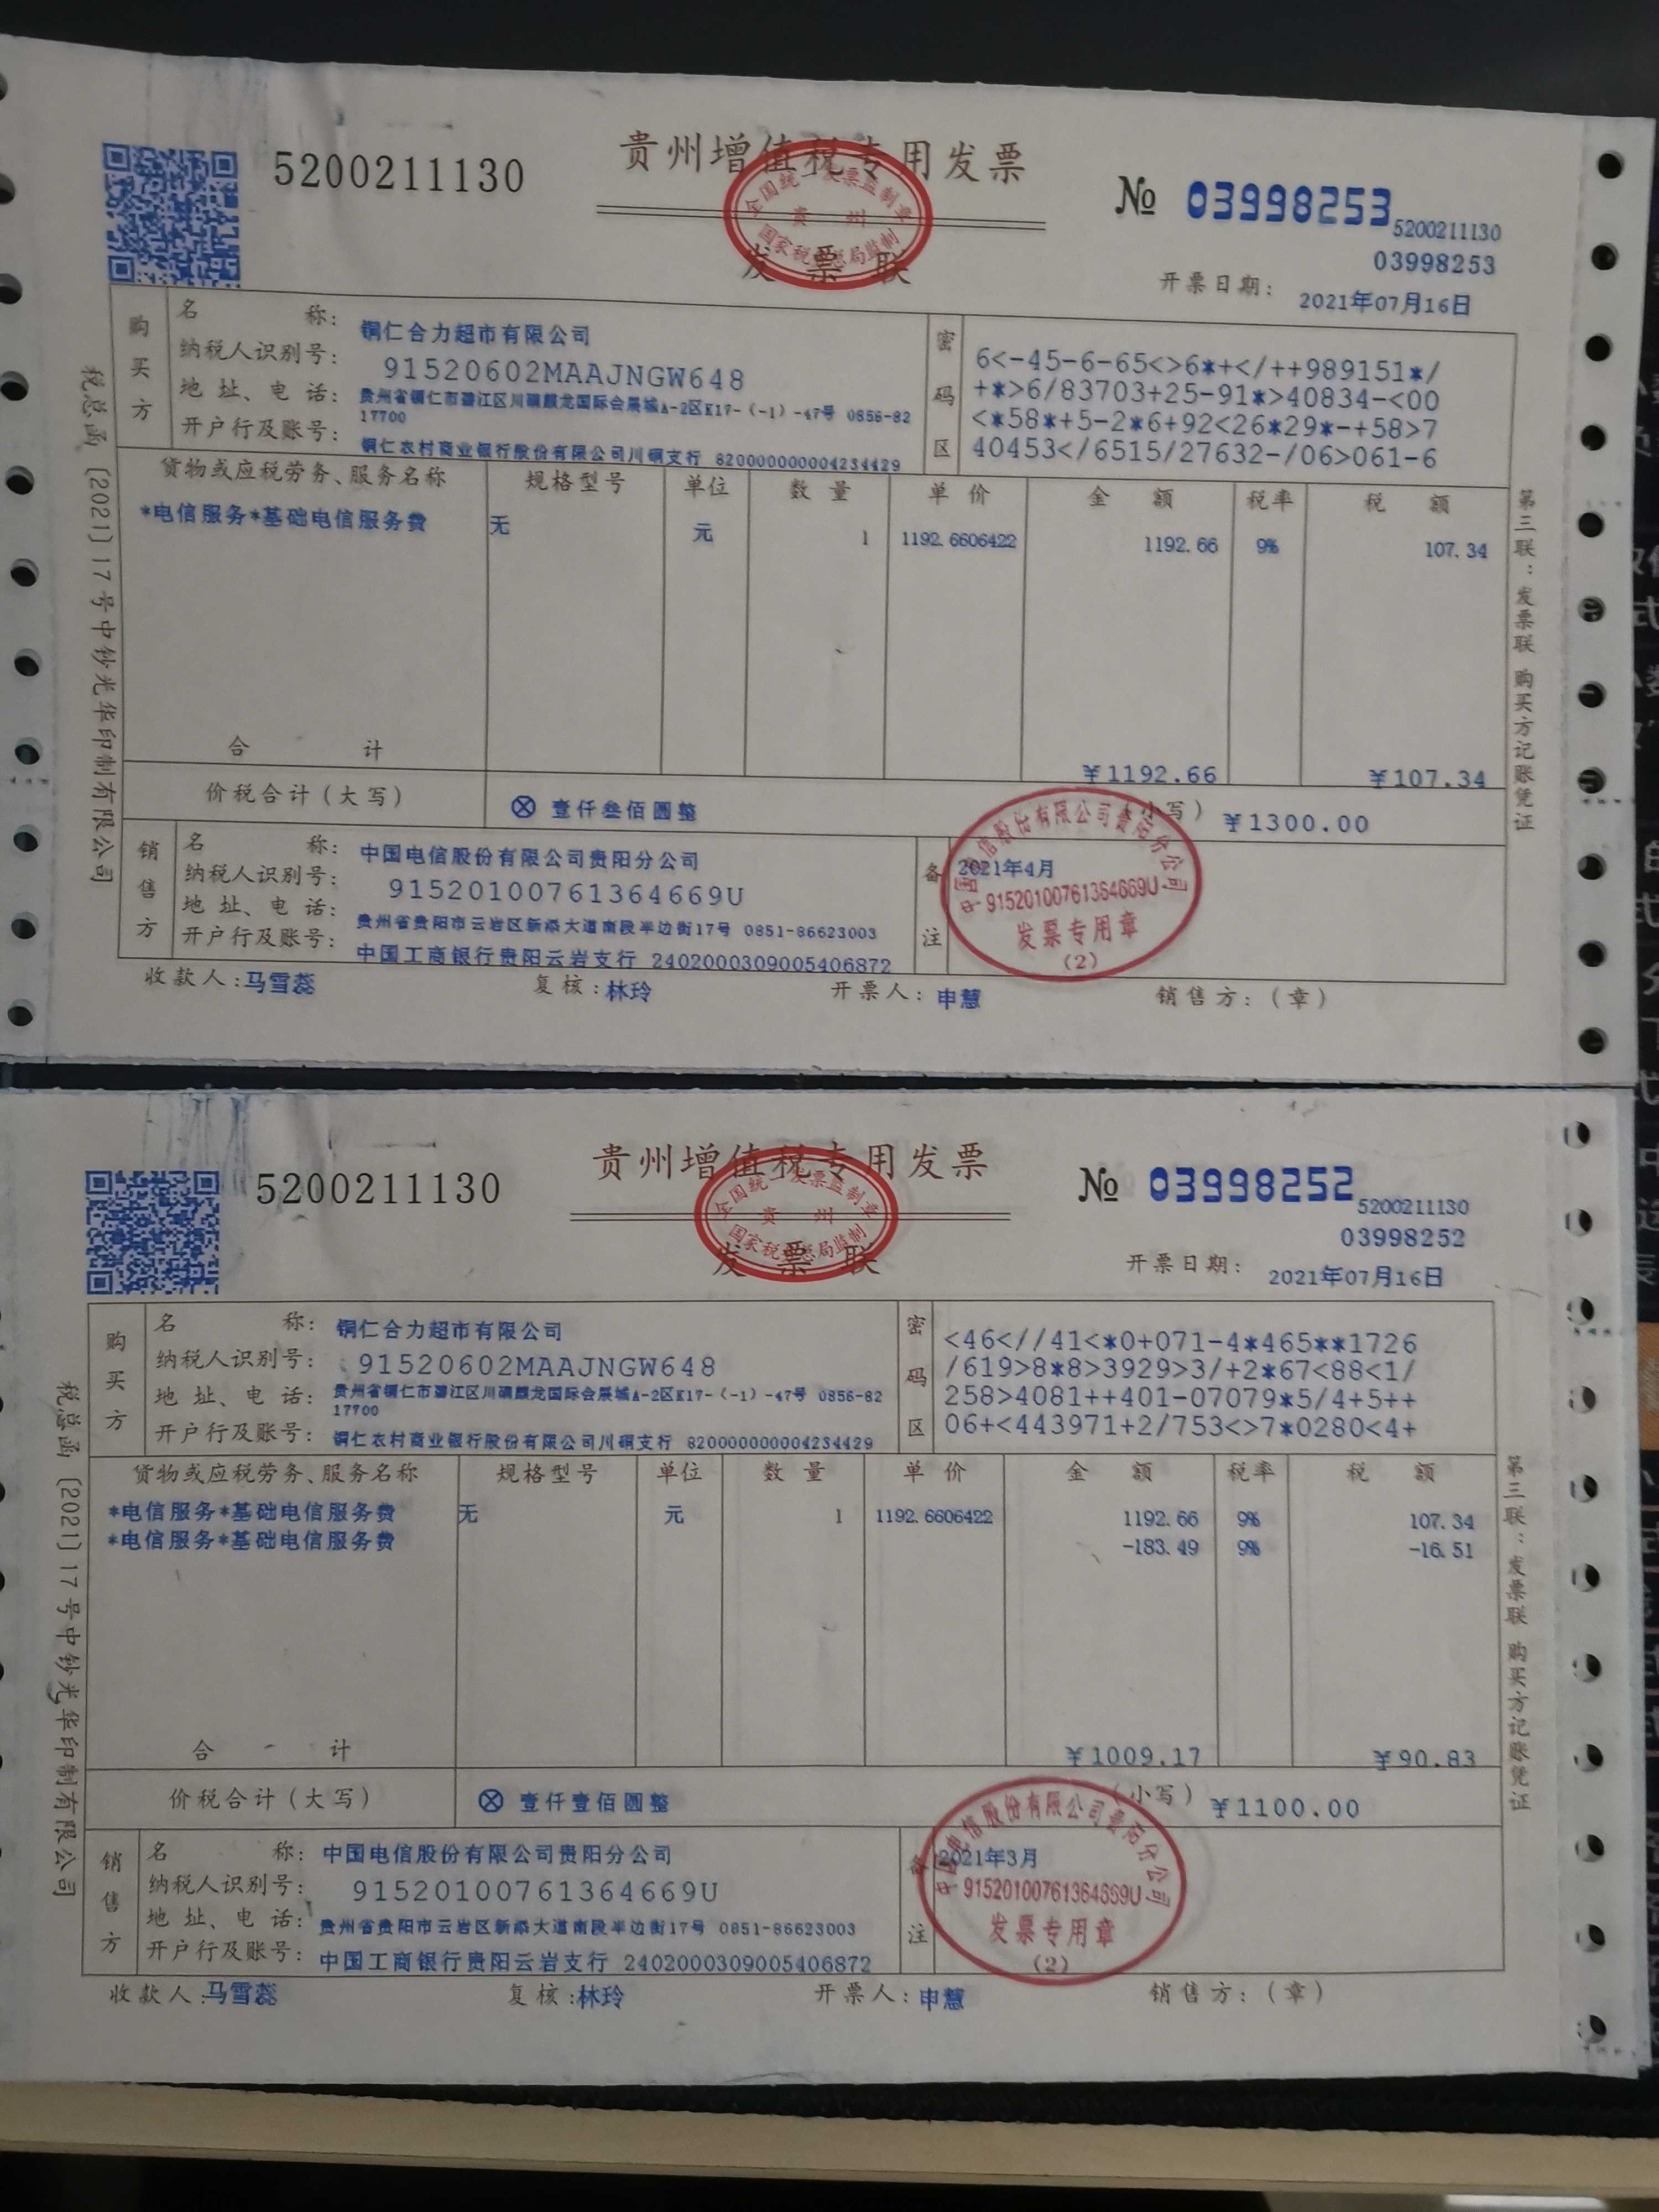 贵州增值税专用发票
5200211130
№ 03998253
5200211130
03998253
全国统一发票监制章
贵 州
国家税务总局监制
发 票 联
开票日期: 2021年07月16日
购买方
名 称: 铜仁合力超市有限公司
纳税人识别号: 91520602MAAJNGW648
地 址、电 话: 贵州省铜仁市碧江区川硐麒龙国际会展城A-2区K17-(-1)-47号 0856-82
17700
开户行及账号: 铜仁农村商业银行股份有限公司川硐支行 820000000004234429
密码区
6<-45-6-65<>6*+</++989151*/
+*>6/83703+25-91*>40834-<00
<*58*+5-2*6+92<26*29*-+58>7
40453</6515/27632-/06>061-6
货物或应税劳务、服务名称 规格型号 单位 数 量 单 价 金 额 税率 税 额
*电信服务*基础电信服务费 无 元 1 1192.6606422 1192.66 9% 107.34
合 计 ¥1192.66 ¥107.34
价税合计(大写) ⊗ 壹仟叁佰圆整 (小写) ¥1300.00
销售方
名 称: 中国电信股份有限公司贵阳分公司
纳税人识别号: 91520100761364669U
地 址、电 话: 贵州省贵阳市云岩区新添大道南段半边街17号 0851-86623003
开户行及账号: 中国工商银行贵阳云岩支行 2402000309005406872
备注
2021年4月
中国电信股份有限公司贵阳分公司
91520100761364669U
发票专用章
(2)
收款人:马雪蕊 复核:林玲 开票人:申慧 销售方:(章)
税总函〔2021〕17号中钞光华印制有限公司
第三联:发票联 购买方记账凭证
贵州增值税专用发票
5200211130
№ 03998252
5200211130
03998252
全国统一发票监制章
贵 州
国家税务总局监制
发 票 联
开票日期: 2021年07月16日
购买方
名 称: 铜仁合力超市有限公司
纳税人识别号: 91520602MAAJNGW648
地 址、电 话: 贵州省铜仁市碧江区川硐麒龙国际会展城A-2区K17-(-1)-47号 0856-82
17700
开户行及账号: 铜仁农村商业银行股份有限公司川硐支行 820000000004234429
密码区
<46<//41<*0+071-4*465**1726
/619>8*8>3929>3/+2*67<88<1/
258>4081++401-07079*5/4+5++
06+<443971+2/753<>7*0280<4+
货物或应税劳务、服务名称 规格型号 单位 数 量 单 价 金 额 税率 税 额
*电信服务*基础电信服务费 无 元 1 1192.6606422 1192.66 9% 107.34
*电信服务*基础电信服务费 -183.49 9% -16.51
合 计 ¥1009.17 ¥90.83
价税合计(大写) ⊗ 壹仟壹佰圆整 (小写) ¥1100.00
销售方
名 称: 中国电信股份有限公司贵阳分公司
纳税人识别号: 91520100761364669U
地 址、电 话: 贵州省贵阳市云岩区新添大道南段半边街17号 0851-86623003
开户行及账号: 中国工商银行贵阳云岩支行 2402000309005406872
备注
2021年3月
中国电信股份有限公司贵阳分公司
91520100761364669U
发票专用章
(2)
收款人:马雪蕊 复核:林玲 开票人:申慧 销售方:(章)
税总函〔2021〕17号中钞光华印制有限公司
第三联:发票联 购买方记账凭证